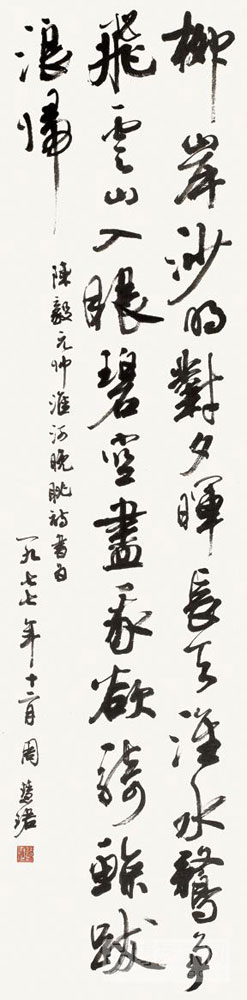 柳岸沙明對夕暉長天淮水鶩爭
飛雲山入眼碧空盡我欲騎鯨跋
浪歸
陳毅元帥淮河晚眺詩書白
一九七七年十二月周慧珺